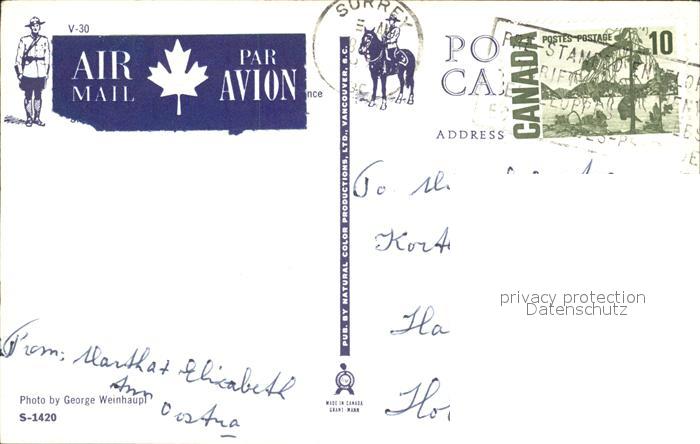 V-30
AIR MAIL
PAR AVION
nce
SURREY
PUB. BY NATURAL COLOR PRODUCTIONS, LTD., VANCOUVER, B.C.
PO
CA
ADDRESS
CANADA
POSTES POSTAGE
10
To
Kort
Ha
Ho
privacy protection
Datenschutz
From: Martha + Elizabeth
Ann
Oostra
Photo by George Weinhaupl
S-1420
MADE IN CANADA
GRANT-MANN